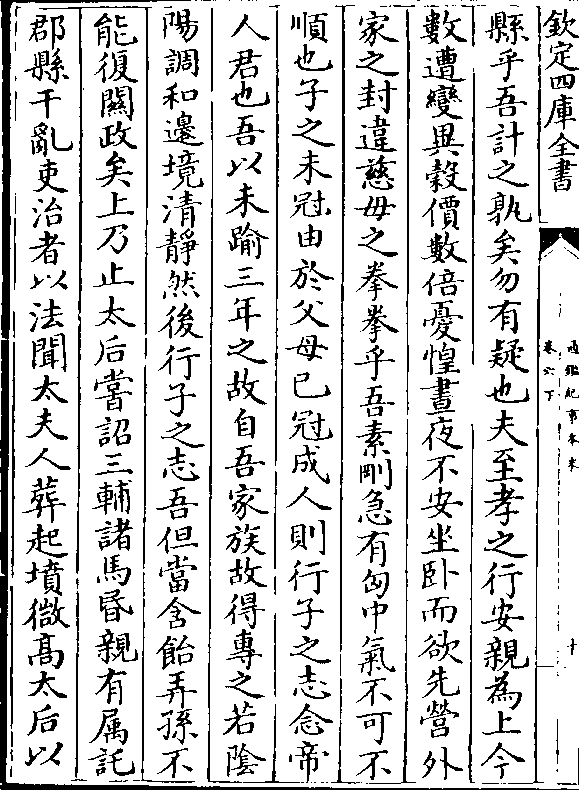 欽定四庫全書
通鑑紀事本末
卷六下
十
縣乎吾計之孰矣勿有疑也夫至孝之行安親為上今
數遭變異穀價數倍憂惶晝夜不安坐卧而欲先營外
家之封違慈母之拳拳乎吾素剛急有匈中氣不可不
順也子之未冠由於父母已冠成人則行子之志念帝
人君也吾以未踰三年之故自吾家族故得專之若陰
陽調和邊境清靜然後行子之志吾但當含飴弄孫不
能復關政矣上乃止太后嘗詔三輔諸馬昏親有属託
郡縣干亂吏治者以法聞太夫人葬起墳微髙太后以